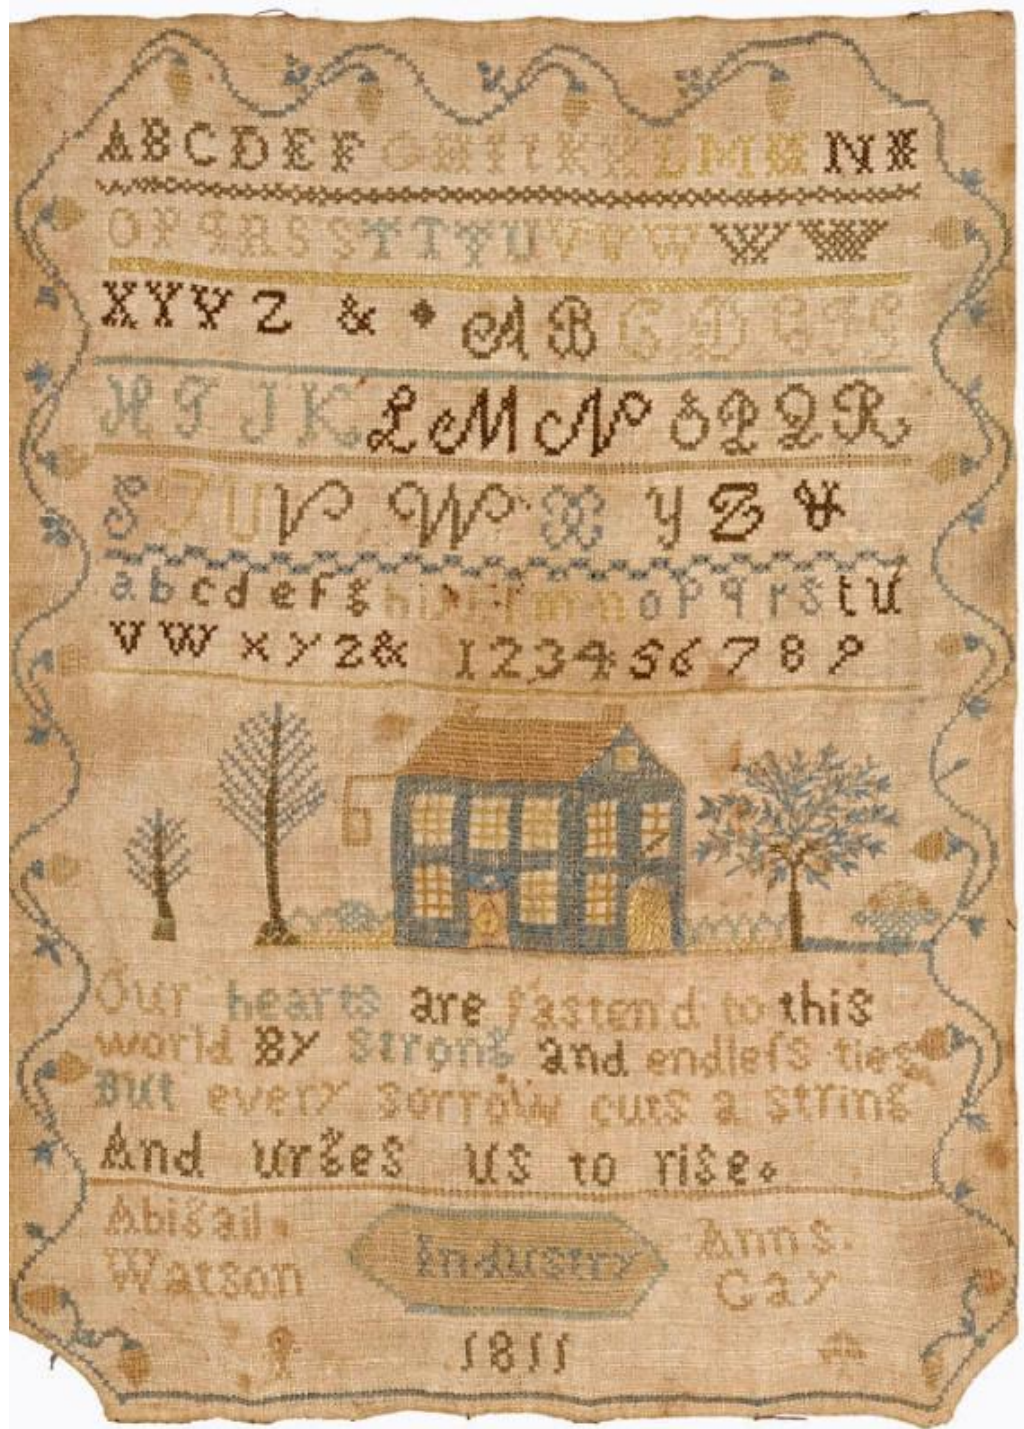 ABCDEF GHIIKKLMM NN
OPQRSSTTTUVVWWW
XYYZ & AB C D E F G
HI JK L M N O P Q R
S T U V W X Y Z &
abcdefghiklmnopqrstu
vwxyz& 123456789
Our hearts are fastend to this
world By strong and endleſs ties
But every sorrow cuts a string
And urges us to rise.
Abigail. Industry Ann S.
Watson Gay
1811